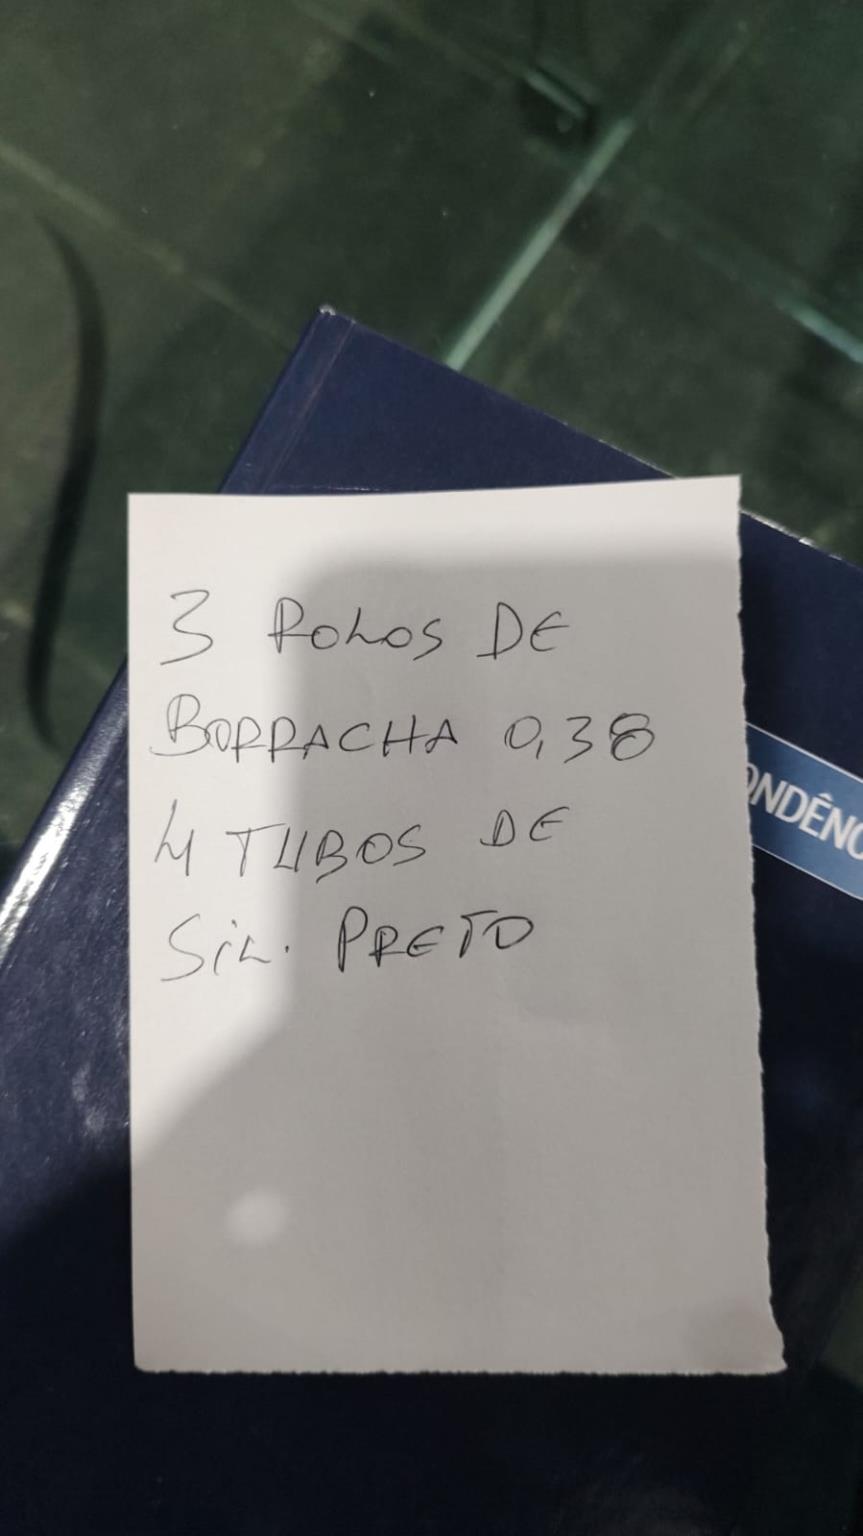 3 ROLOS DE
BORRACHA 0,38
4 TUBOS DE
SIL. PRETO
ONDÊNC